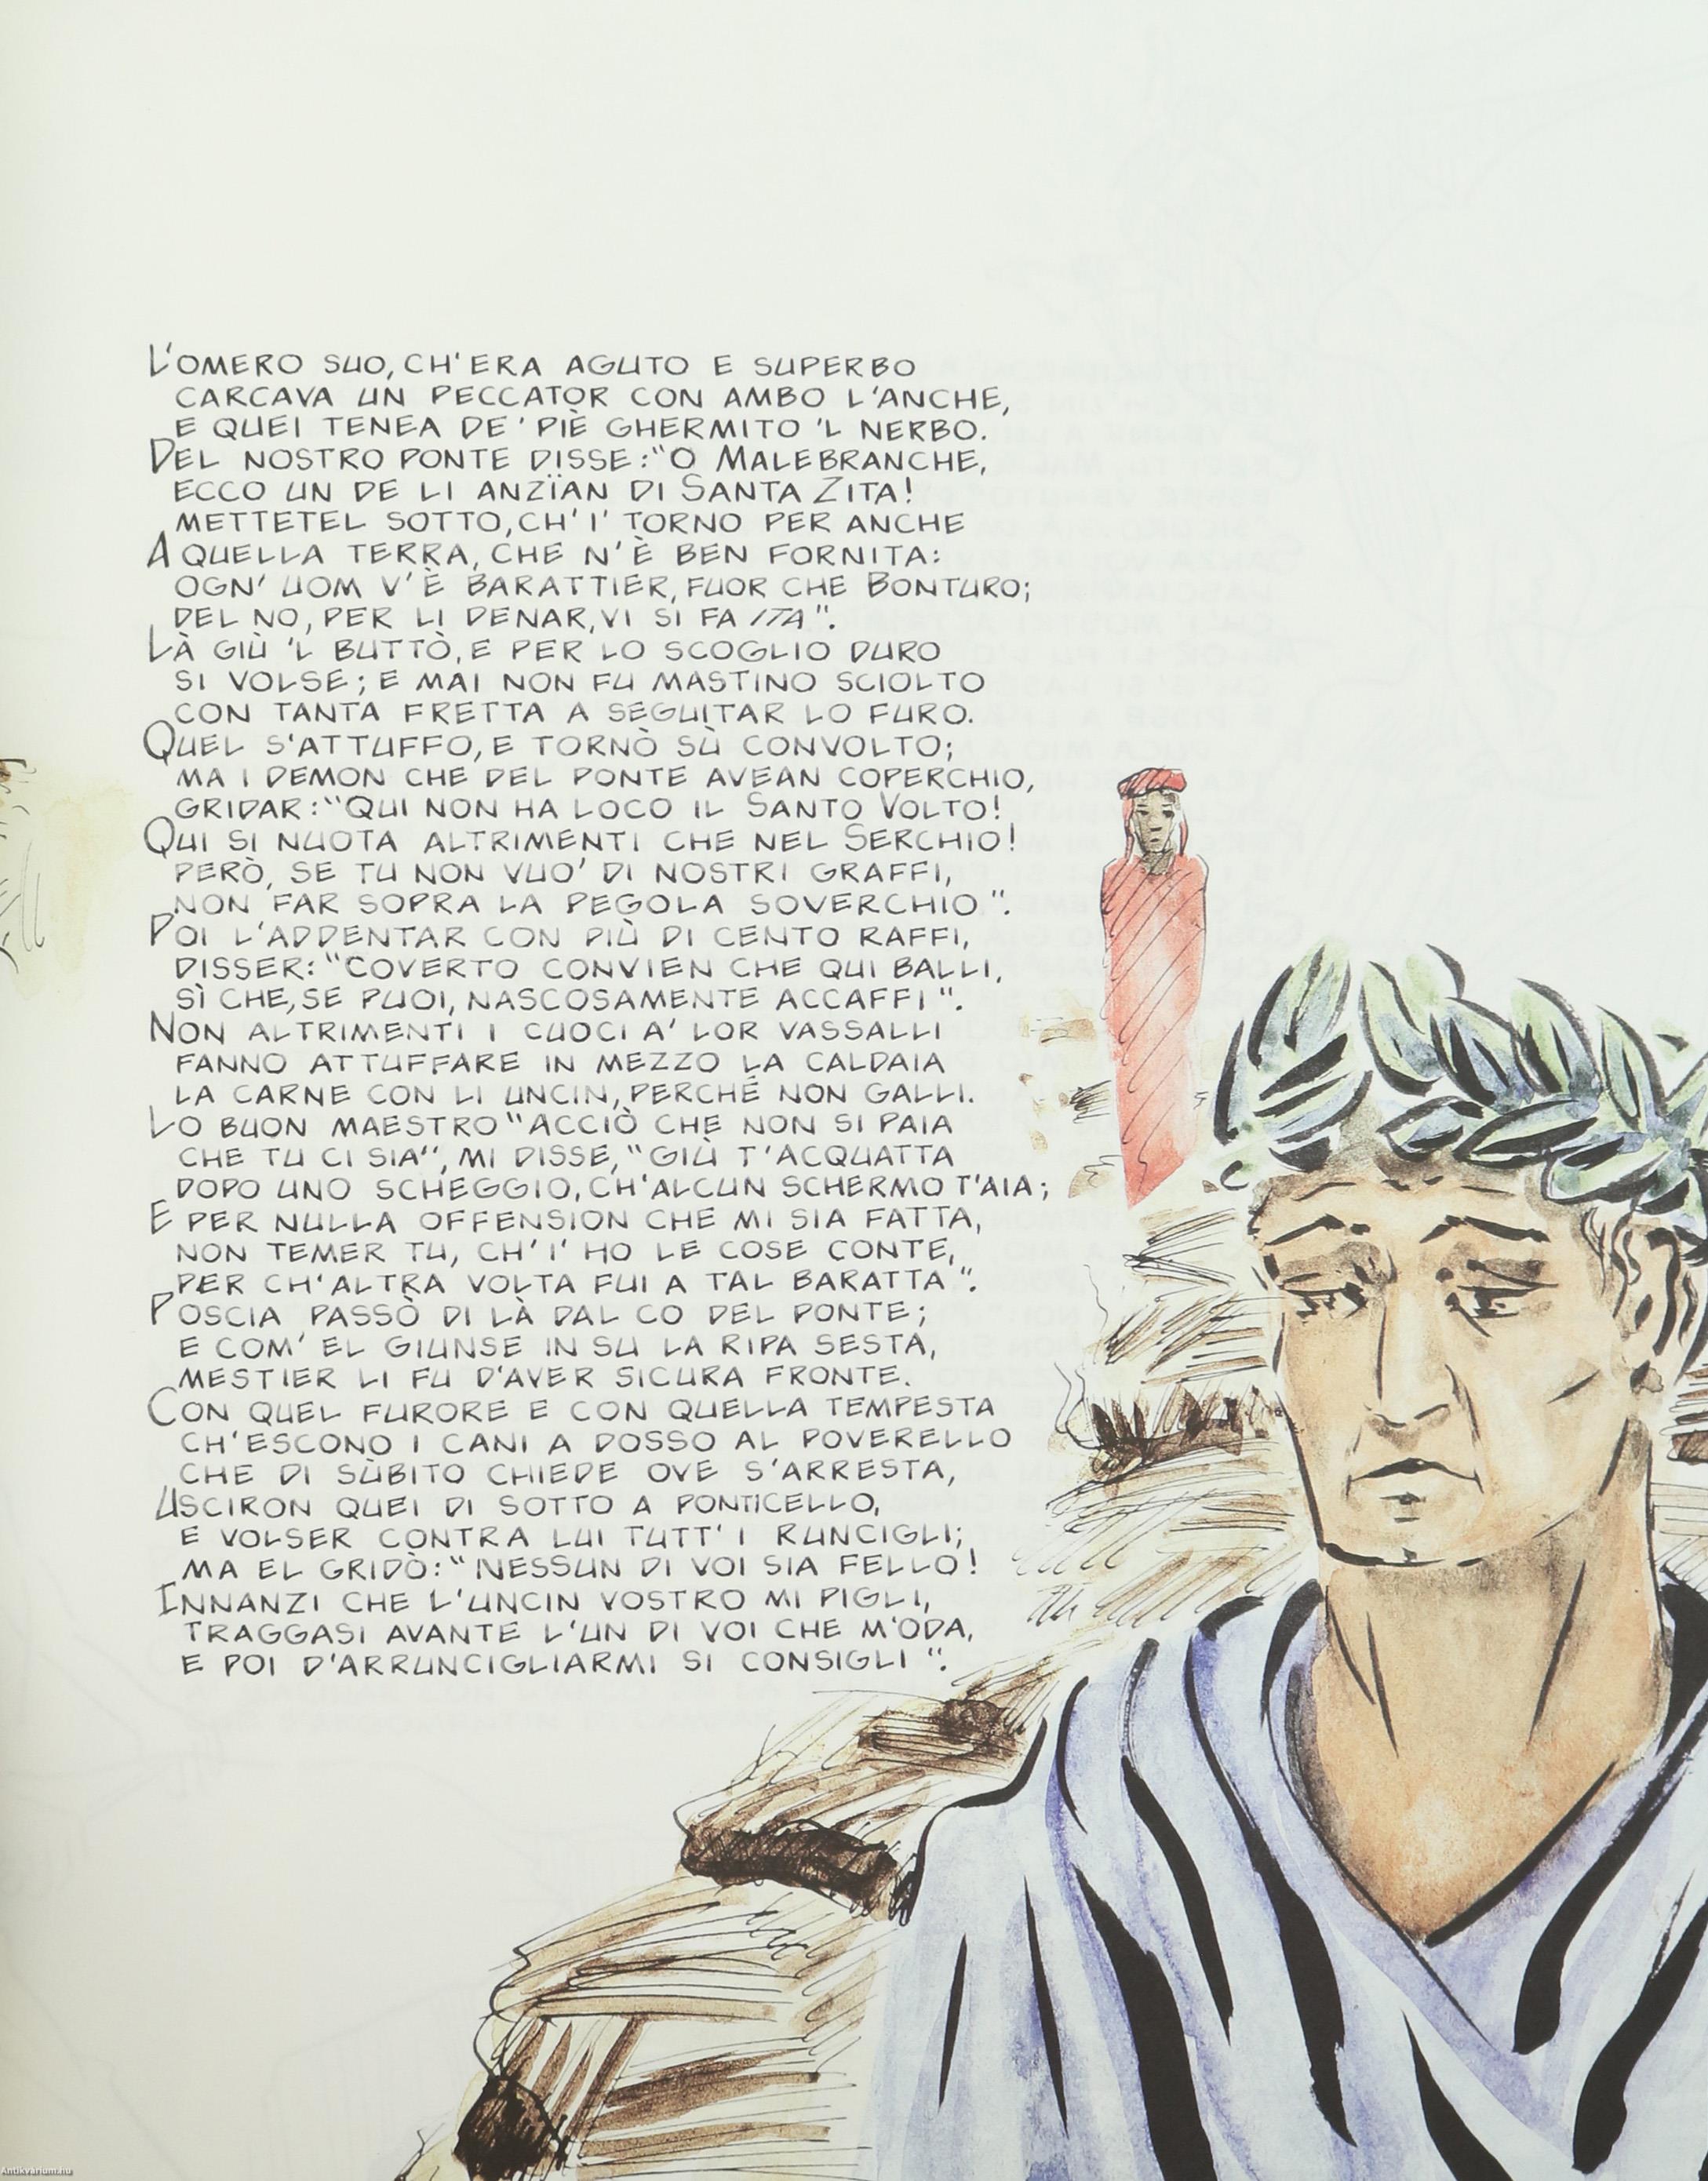 L'OMERO SUO, CH'ERA AGUTO E SUPERBO
CARCAVA UN PECCATOR CON AMBO L'ANCHE,
E QUEI TENEA DE' PIÈ GHERMITO 'L NERBO.
DEL NOSTRO PONTE DISSE: "O MALEBRANCHE,
ECCO UN DE LI ANZÏAN DI SANTA ZITA!
METTETEL SOTTO, CH'I' TORNO PER ANCHE
A QUELLA TERRA, CHE N'È BEN FORNITA:
OGN' UOM V'È BARATTIER, FUOR CHE BONTURO;
DEL NO, PER LI DENAR, VI SI FA ITA".
LÀ GIÙ 'L BUTTÒ, E PER LO SCOGLIO DURO
SI VOLSE; E MAI NON FU MASTINO SCIOLTO
CON TANTA FRETTA A SEGUITAR LO FURO.
QUEL S'ATTUFFO, E TORNÒ SÙ CONVOLTO;
MA I DEMON CHE DEL PONTE AVEAN COPERCHIO,
GRIDAR: "QUI NON HA LOCO IL SANTO VOLTO!
QUI SI NUOTA ALTRIMENTI CHE NEL SERCHIO!
PERÒ, SE TU NON VUO' DI NOSTRI GRAFFI,
NON FAR SOPRA LA PEGOLA SOVERCHIO".
POI L'ADDENTAR CON PIÙ DI CENTO RAFFI,
DISSER: "COVERTO CONVIEN CHE QUI BALLI,
SÌ CHE, SE PUOI, NASCOSAMENTE ACCAFFI".
NON ALTRIMENTI I CUOCI A' LOR VASSALLI
FANNO ATTUFFARE IN MEZZO LA CALDAIA
LA CARNE CON LI UNCIN, PERCHÉ NON GALLI.
LO BUON MAESTRO "ACCIÒ CHE NON SI PAIA
CHE TU CI SIA", MI DISSE, "GIÙ T'ACQUATTA
DOPO UNO SCHEGGIO, CH'ALCUN SCHERMO T'AIA;
E PER NULLA OFFENSION CHE MI SIA FATTA,
NON TEMER TU, CH'I' HO LE COSE CONTE,
PER CH'ALTRA VOLTA FUI A TAL BARATTA".
POSCIA PASSÒ DI LÀ DAL CO DEL PONTE;
E COM' EL GIUNSE IN SU LA RIPA SESTA,
MESTIER LI FU D'AVER SICURA FRONTE.
CON QUEL FURORE E CON QUELLA TEMPESTA
CH'ESCONO I CANI A DOSSO AL POVERELLO
CHE DI SÙBITO CHIEDE OVE S'ARRESTA,
USCIRON QUEI DI SOTTO A PONTICELLO,
E VOLSER CONTRA LUI TUTT' I RUNCIGLI;
MA EL GRIDÒ: "NESSUN DI VOI SIA FELLO!
INNANZI CHE L'UNCIN VOSTRO MI PIGLI,
TRAGGASI AVANTE L'UN DI VOI CHE M'ODA,
E POI D'ARRUNCIGLIARMI SI CONSIGLI".
Antikvarium.hu